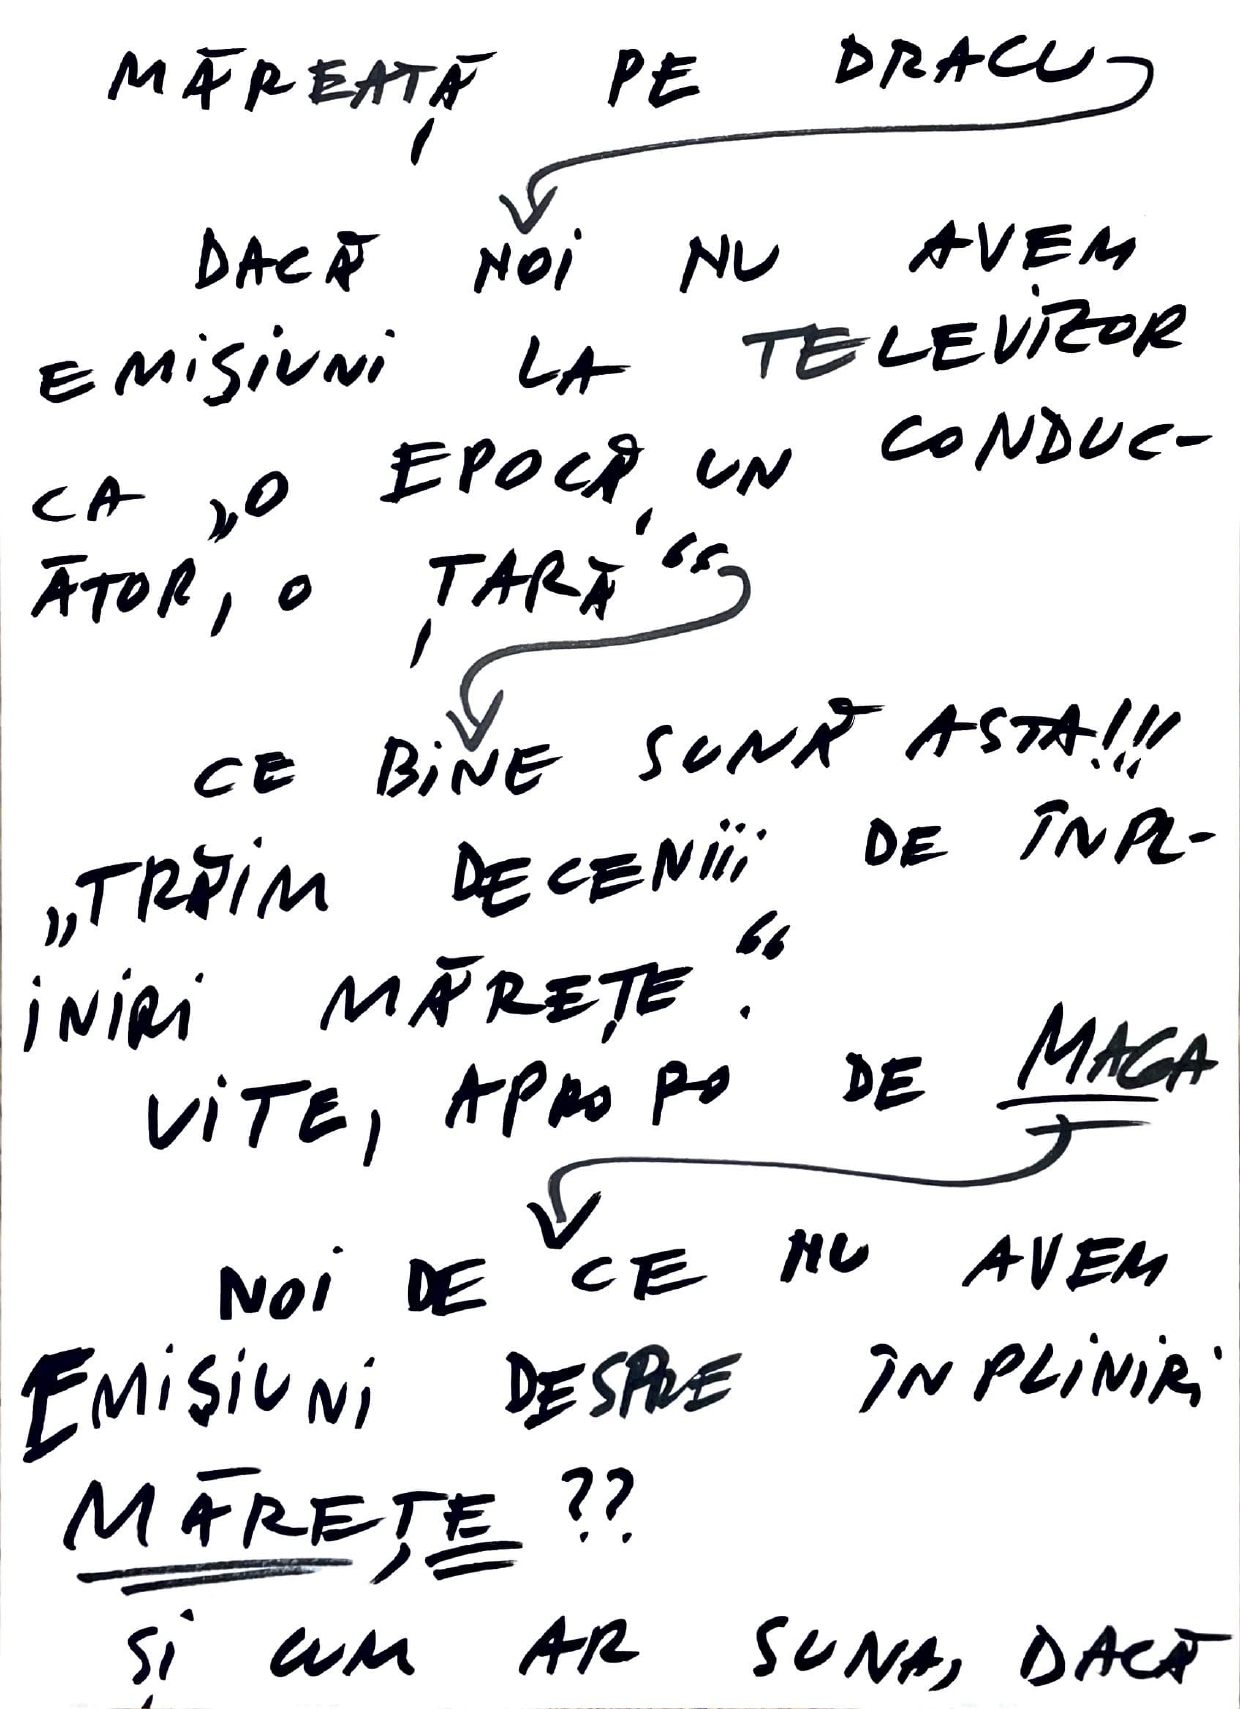 MĂREAȚĂ PE DRACU
DACĂ NOI NU AVEM
EMISIUNI LA TELEVIZOR
CA „O EPOCĂ, UN CONDUC-
ĂTOR, O ȚARĂ“
CE BINE SUNĂ ASTA!!!
„TRĂIM DECENIII DE ÎNPL-
INIRI MĂREȚE“.
VITE, APROPO DE MAGA
NOI DE CE NU AVEM
EMISIUNI DESPRE ÎNPLINIRI
MĂREȚE ??
ȘI CUM AR SUNA, DACĂ